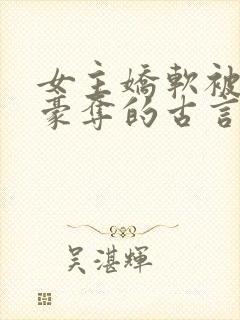 女主嬌軟被
豪奪的古言
吴湛輝